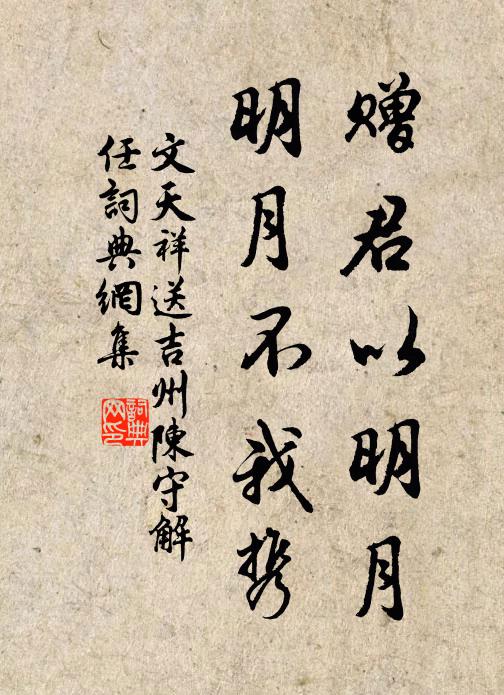 赠君以明月
明月不我携
文天祥送吉州陳守解
任詞典網集
詞典网印